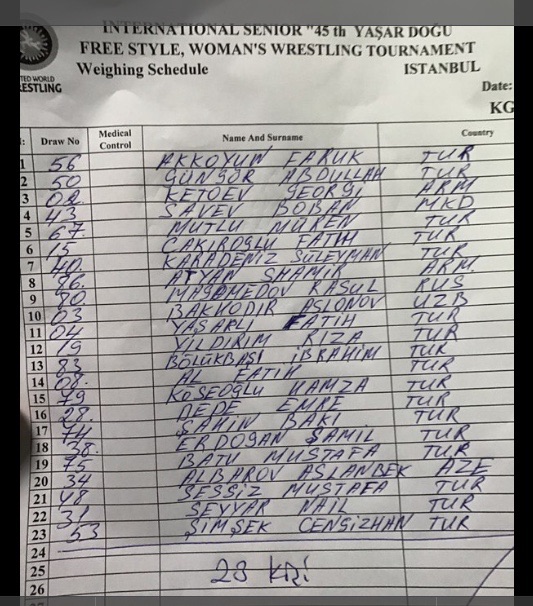 INTERNATIONAL SENIOR "45 th YAŞAR DOĞU
FREE STYLE, WOMAN'S WRESTLING TOURNAMENT
Weighing Schedule ISTANBUL
TED WORLD
ESTLING
Date:
KG
Draw No Medical Control Name And Surname Country
1 56 AKKOYUN FARUK TUR
2 50 GÜNGÖR ABDULLAH TUR
3 02 KETOEV GEORGI ARM
4 43 SAVEV BOBAN MKD
5 67 MUTLU MÜREN TUR
6 15 ÇAKIROĞLU FATIH TUR
7 KARADENİZ SÜLEYMAN TUR
8 86. ATYAN SHAMIR ARM
9 80 MAGOMEDOV RASUL RUS
10 03 BAKHODIR ASLONOV UZB
11 04 YAŞARLI FATİH TUR
12 19 YILDIRIM RIZA TUR
13 83 BÖLÜKBAŞI İBRAHİM TUR
14 08. AL FATİH TUR
15 79 KÖSEOĞLU HAMZA TUR
16 28. DEDE EMRE TUR
17 ŞAHİN BAKI TUR
18 38. ERDOGAN ŞAMİL TUR
19 75 BATU MUSTAFA TUR
20 34 ALBAROV ASLANBEK AZE
21 48 SESSİZ MUSTAFA TUR
22 31 SEYYAR NAİL TUR
23 53 ŞİMŞEK CENGİZHAN TUR
24
25 23 Kişi
26